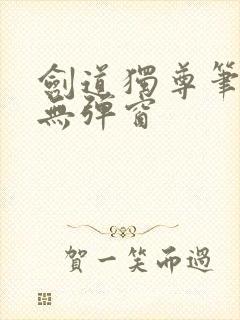 劍道獨尊筆
無彈窗
賀一笑而過